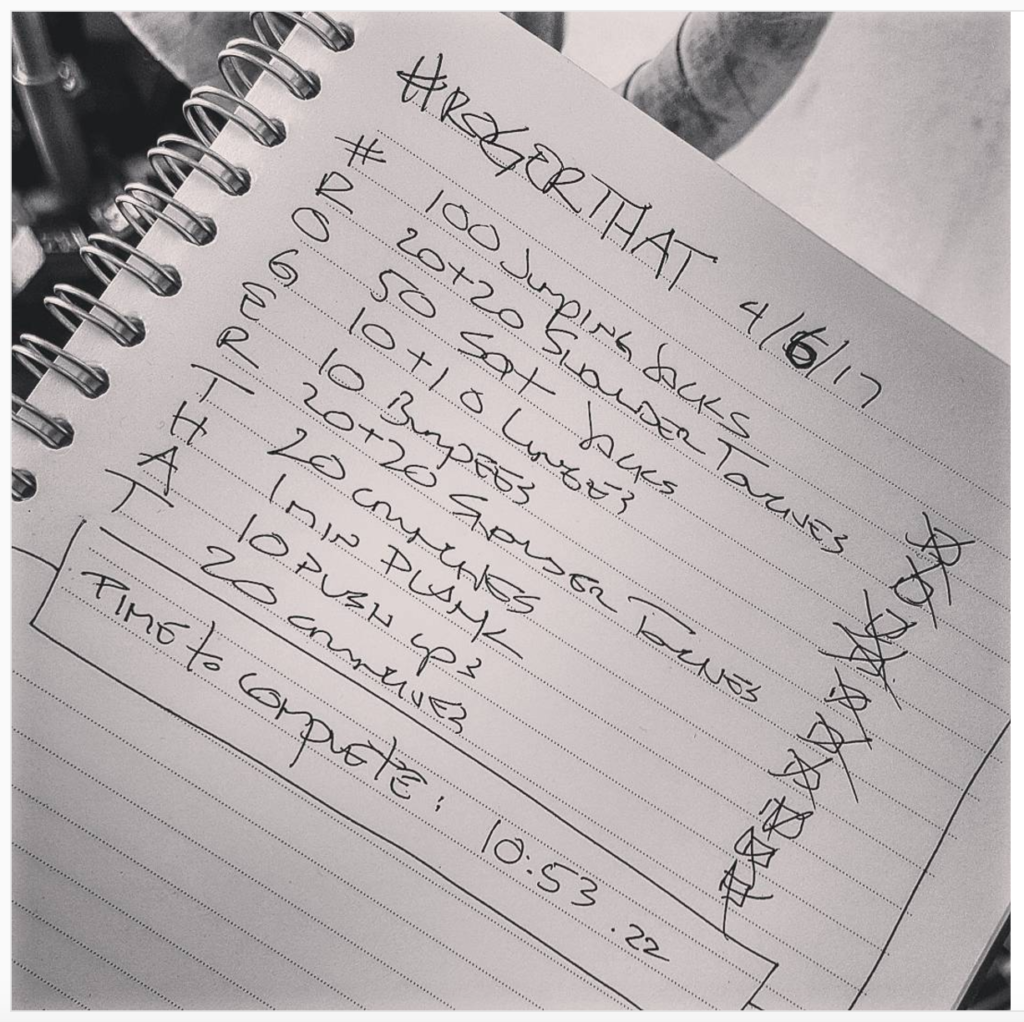 #ROGERTHAT 4/6/17
# 100 Jumping Jacks
R 20+20 SHOULDER TOUCHES
O 50 SQT JACKS
G 10+10 LUNGES
E 10 BURPEES
R 20+20 SHOULDER TOUCHES
T 20 CRUNCHES
H 1 MIN PLANK
A 10 PUSH UPS
T 20 CRUNCHES
TIME to COMPLETE: 10:53.22